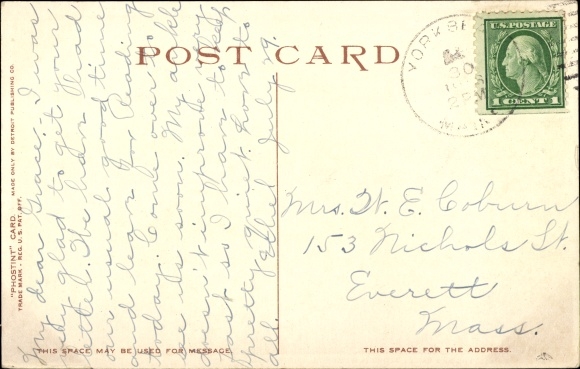 POST CARD
U.S. POSTAGE
1 CENT 1
YORK BE
30
MA
"PHOSTINT" CARD
TRADE MARK - REG. U.S. PAT. OFF.
MADE ONLY BY DETROIT PUBLISHING CO.
My dear Grace:- I was
very glad to get your
letter. We have had
our usual good time
and leave for Reading
today. Come over to
see us soon. My ankle
doesn't improve very
fast so I have to keep
pretty quiet. Love to
all. Ethel July 29.
Mrs. W. E. Coburn
153 Nichols St.
Everett
Mass.
THIS SPACE MAY BE USED FOR MESSAGE.
THIS SPACE FOR THE ADDRESS.